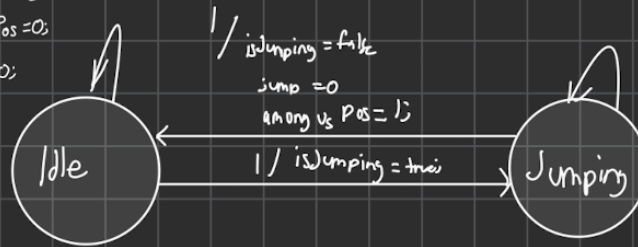 Pos=0;
0;
1/ isJumping = false
jump = 0
among us Pos = 1;
Idle
1/ isJumping = true;
Jumping